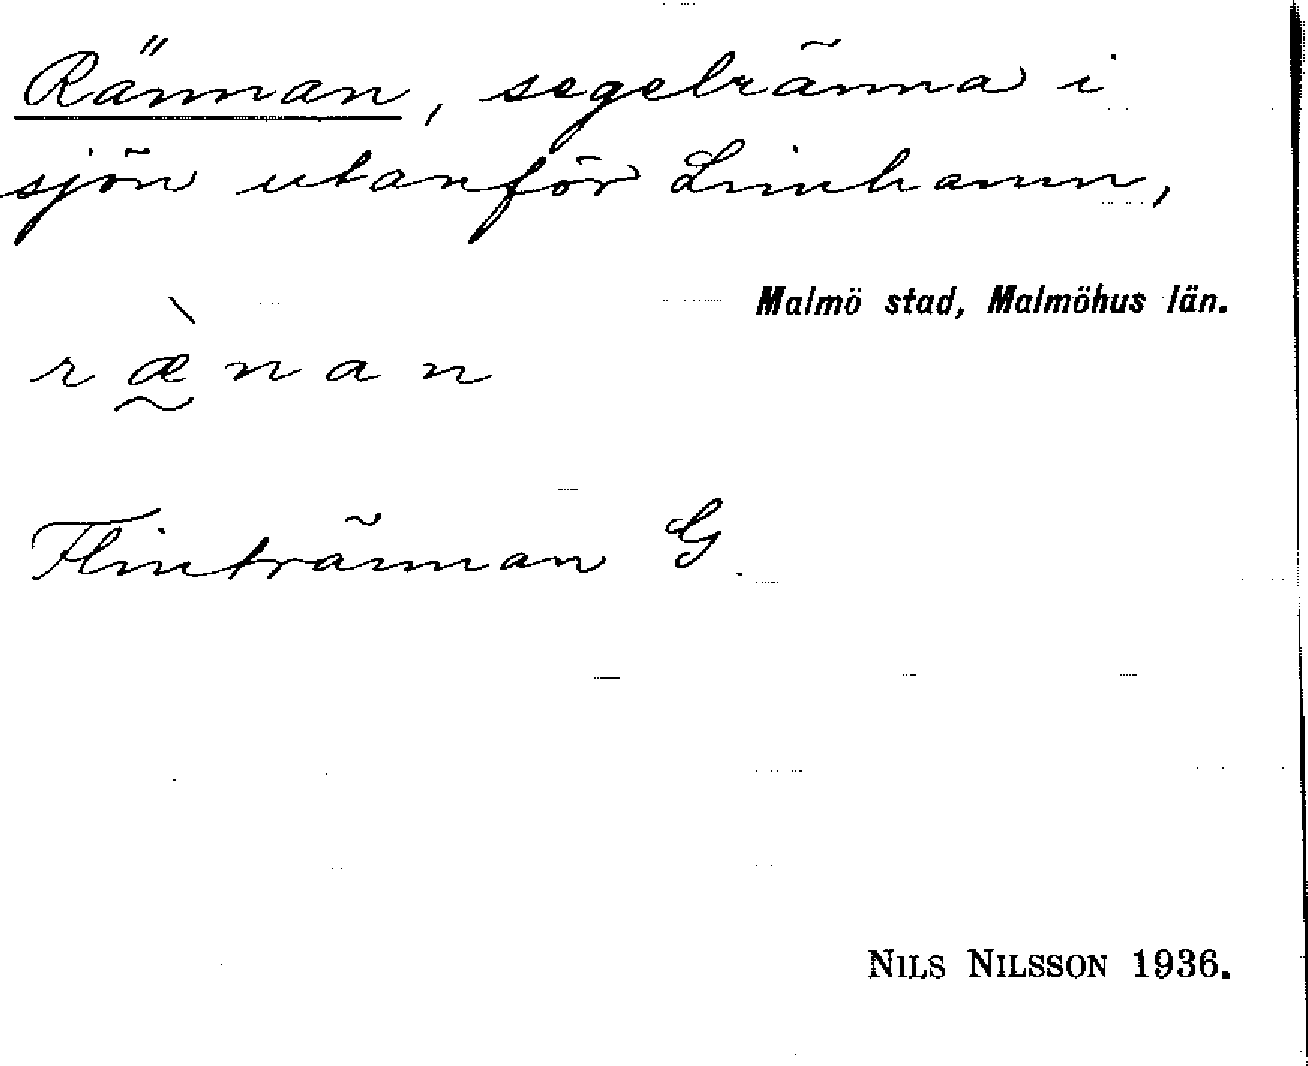 Rännan, segelränna i
sjön utanför Limhamn,
Malmö stad, Malmöhus län.
ræ̰̀nan
Flintrännan G.
NILS NILSSON 1936.